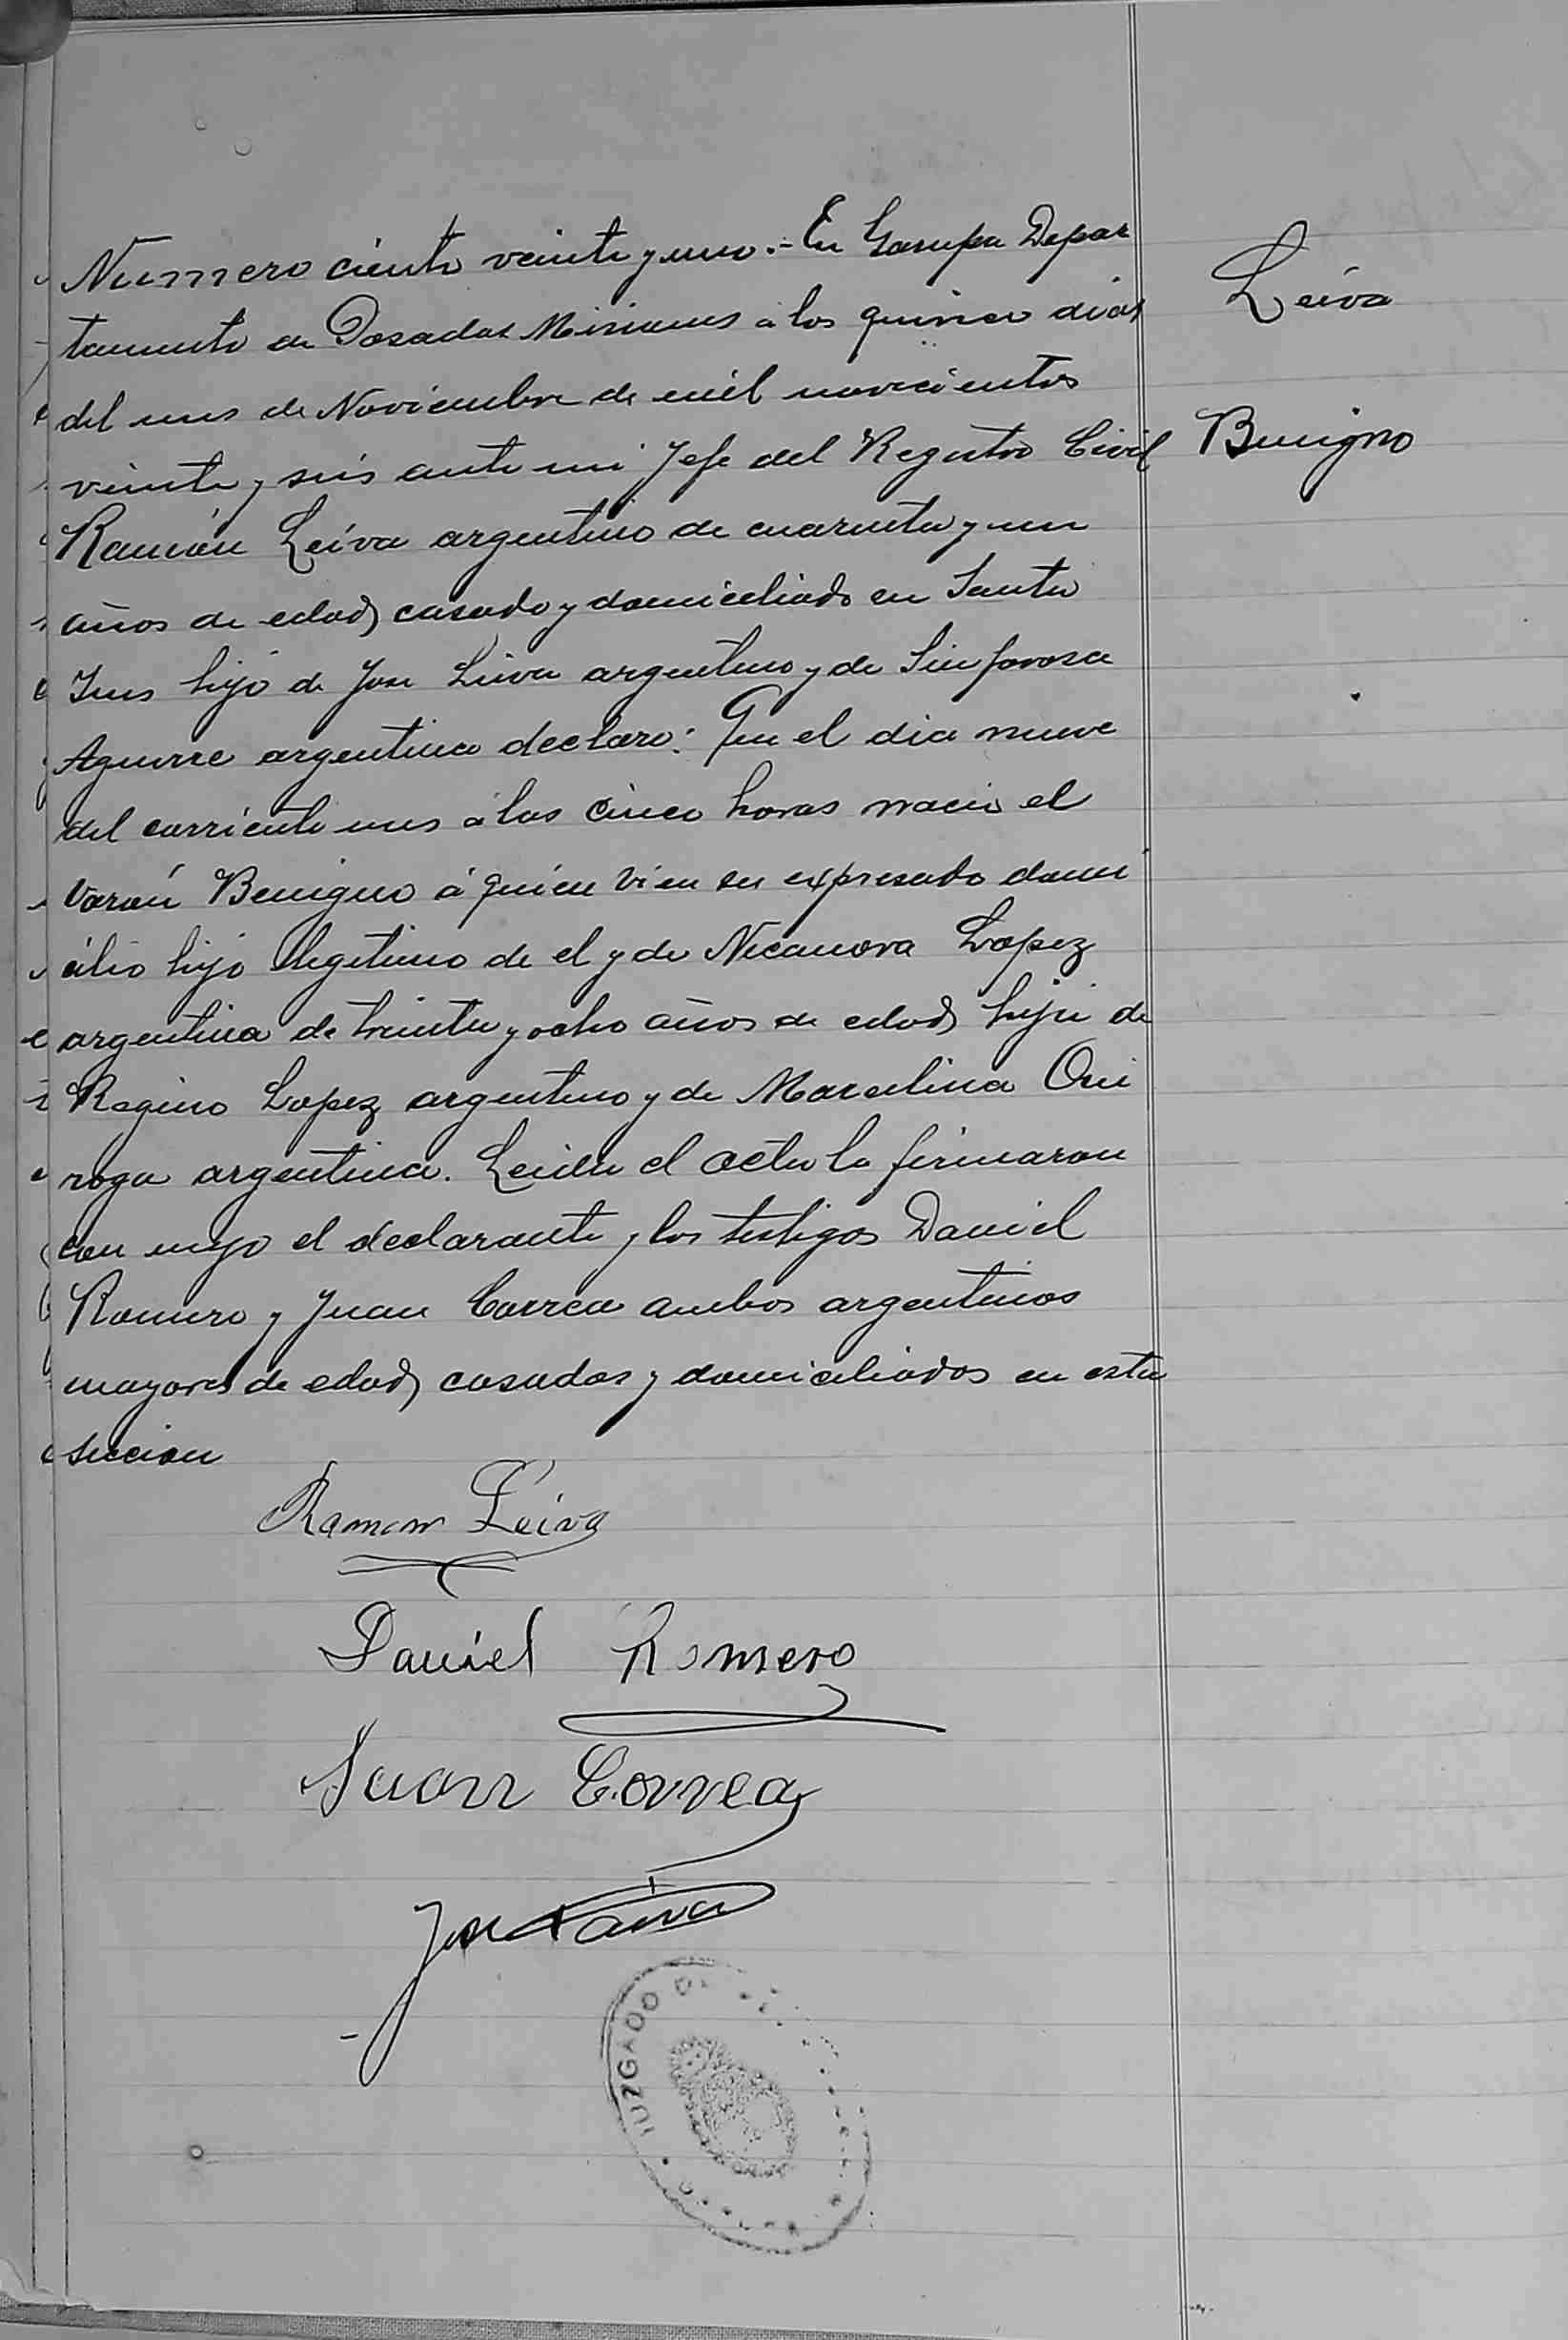 Numero ciento veinte y uno.- En Garupa Depar
tamento de Posadas Misiones á los quince dias
del mes de Noviembre de mil novecientos
veinte y seis ante mi Jefe del Registro Civil
Ramón Leiva argentino de cuarenta y un
años de edad casado y domiciliado en Santa
Ines hijo de Jose Leiva argentino y de Sinforosa
Aguirre argentina declaro: Que el dia nueve
del corriente mes á las cinco horas nacio el
varón Benigno á quien vi en su expresado domi
cilio hijo legitimo de el y de Nicanora Lopez
argentina de treinta y ocho años de edad hija de
Regino Lopez argentino y de Marcelina Qui
roga argentina. Leida el acta la firmaron
con migo el declarante y los testigos Daniel
Romero y Juan Correa ambos argentinos
mayores de edad casados y domiciliados en esta
seccion
Leiva
Benigno
Ramon Leiva
Daniel Romero
Juan Correa
Jose
JUZGADO DE